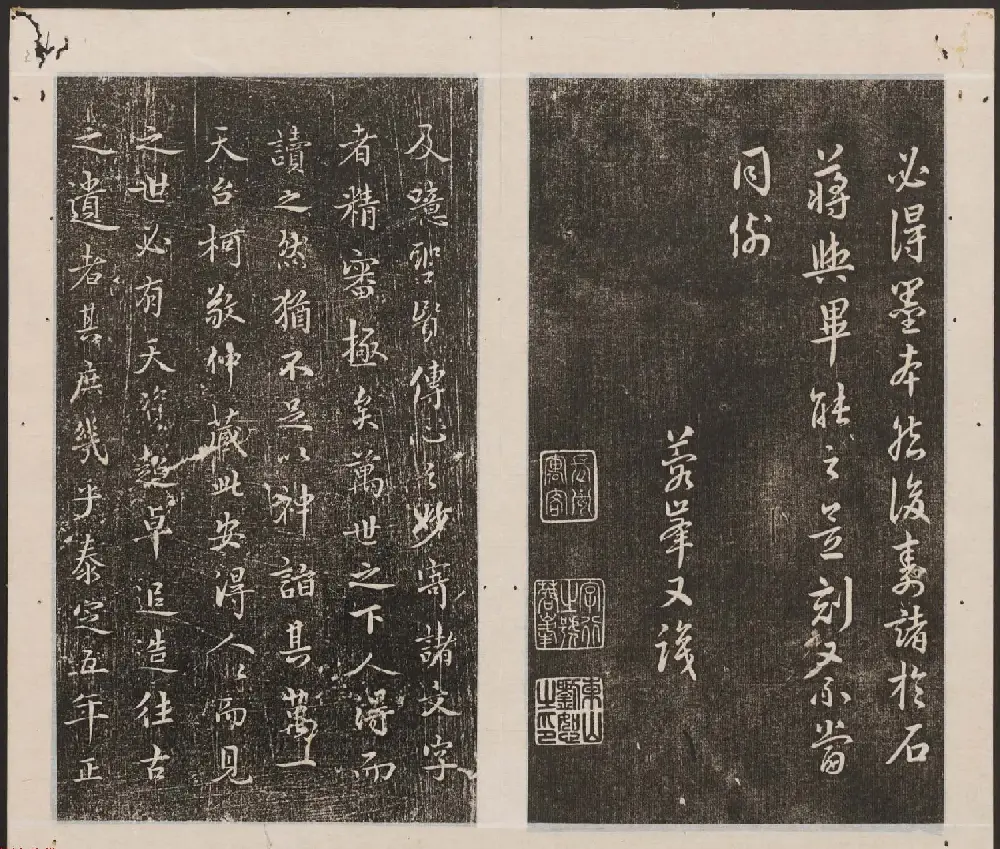 必得墨本然後壽諸於石
蔣與畢能之刻又不當
同例
蓉峯又識
東山劉恕之印
及聖賢傳心之妙寄諸文字
者精審極矣萬世之下人得而
讀之然猶不足以神諧其萬一
天台柯敬仲藏此安得人人而見
之世必有天資超卓追造往古
之遺者其庶幾乎泰定五年正